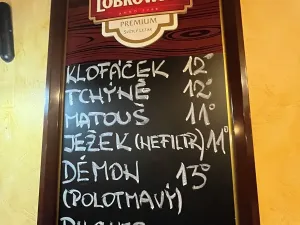 PREMIUM
KLOFÁČEK 12°
TCHÝNĚ 12°
MATOUŠ 11°
JEŽEK (NEFILTR) 11°
DÉMON 13°
(POLOTMAVÝ)